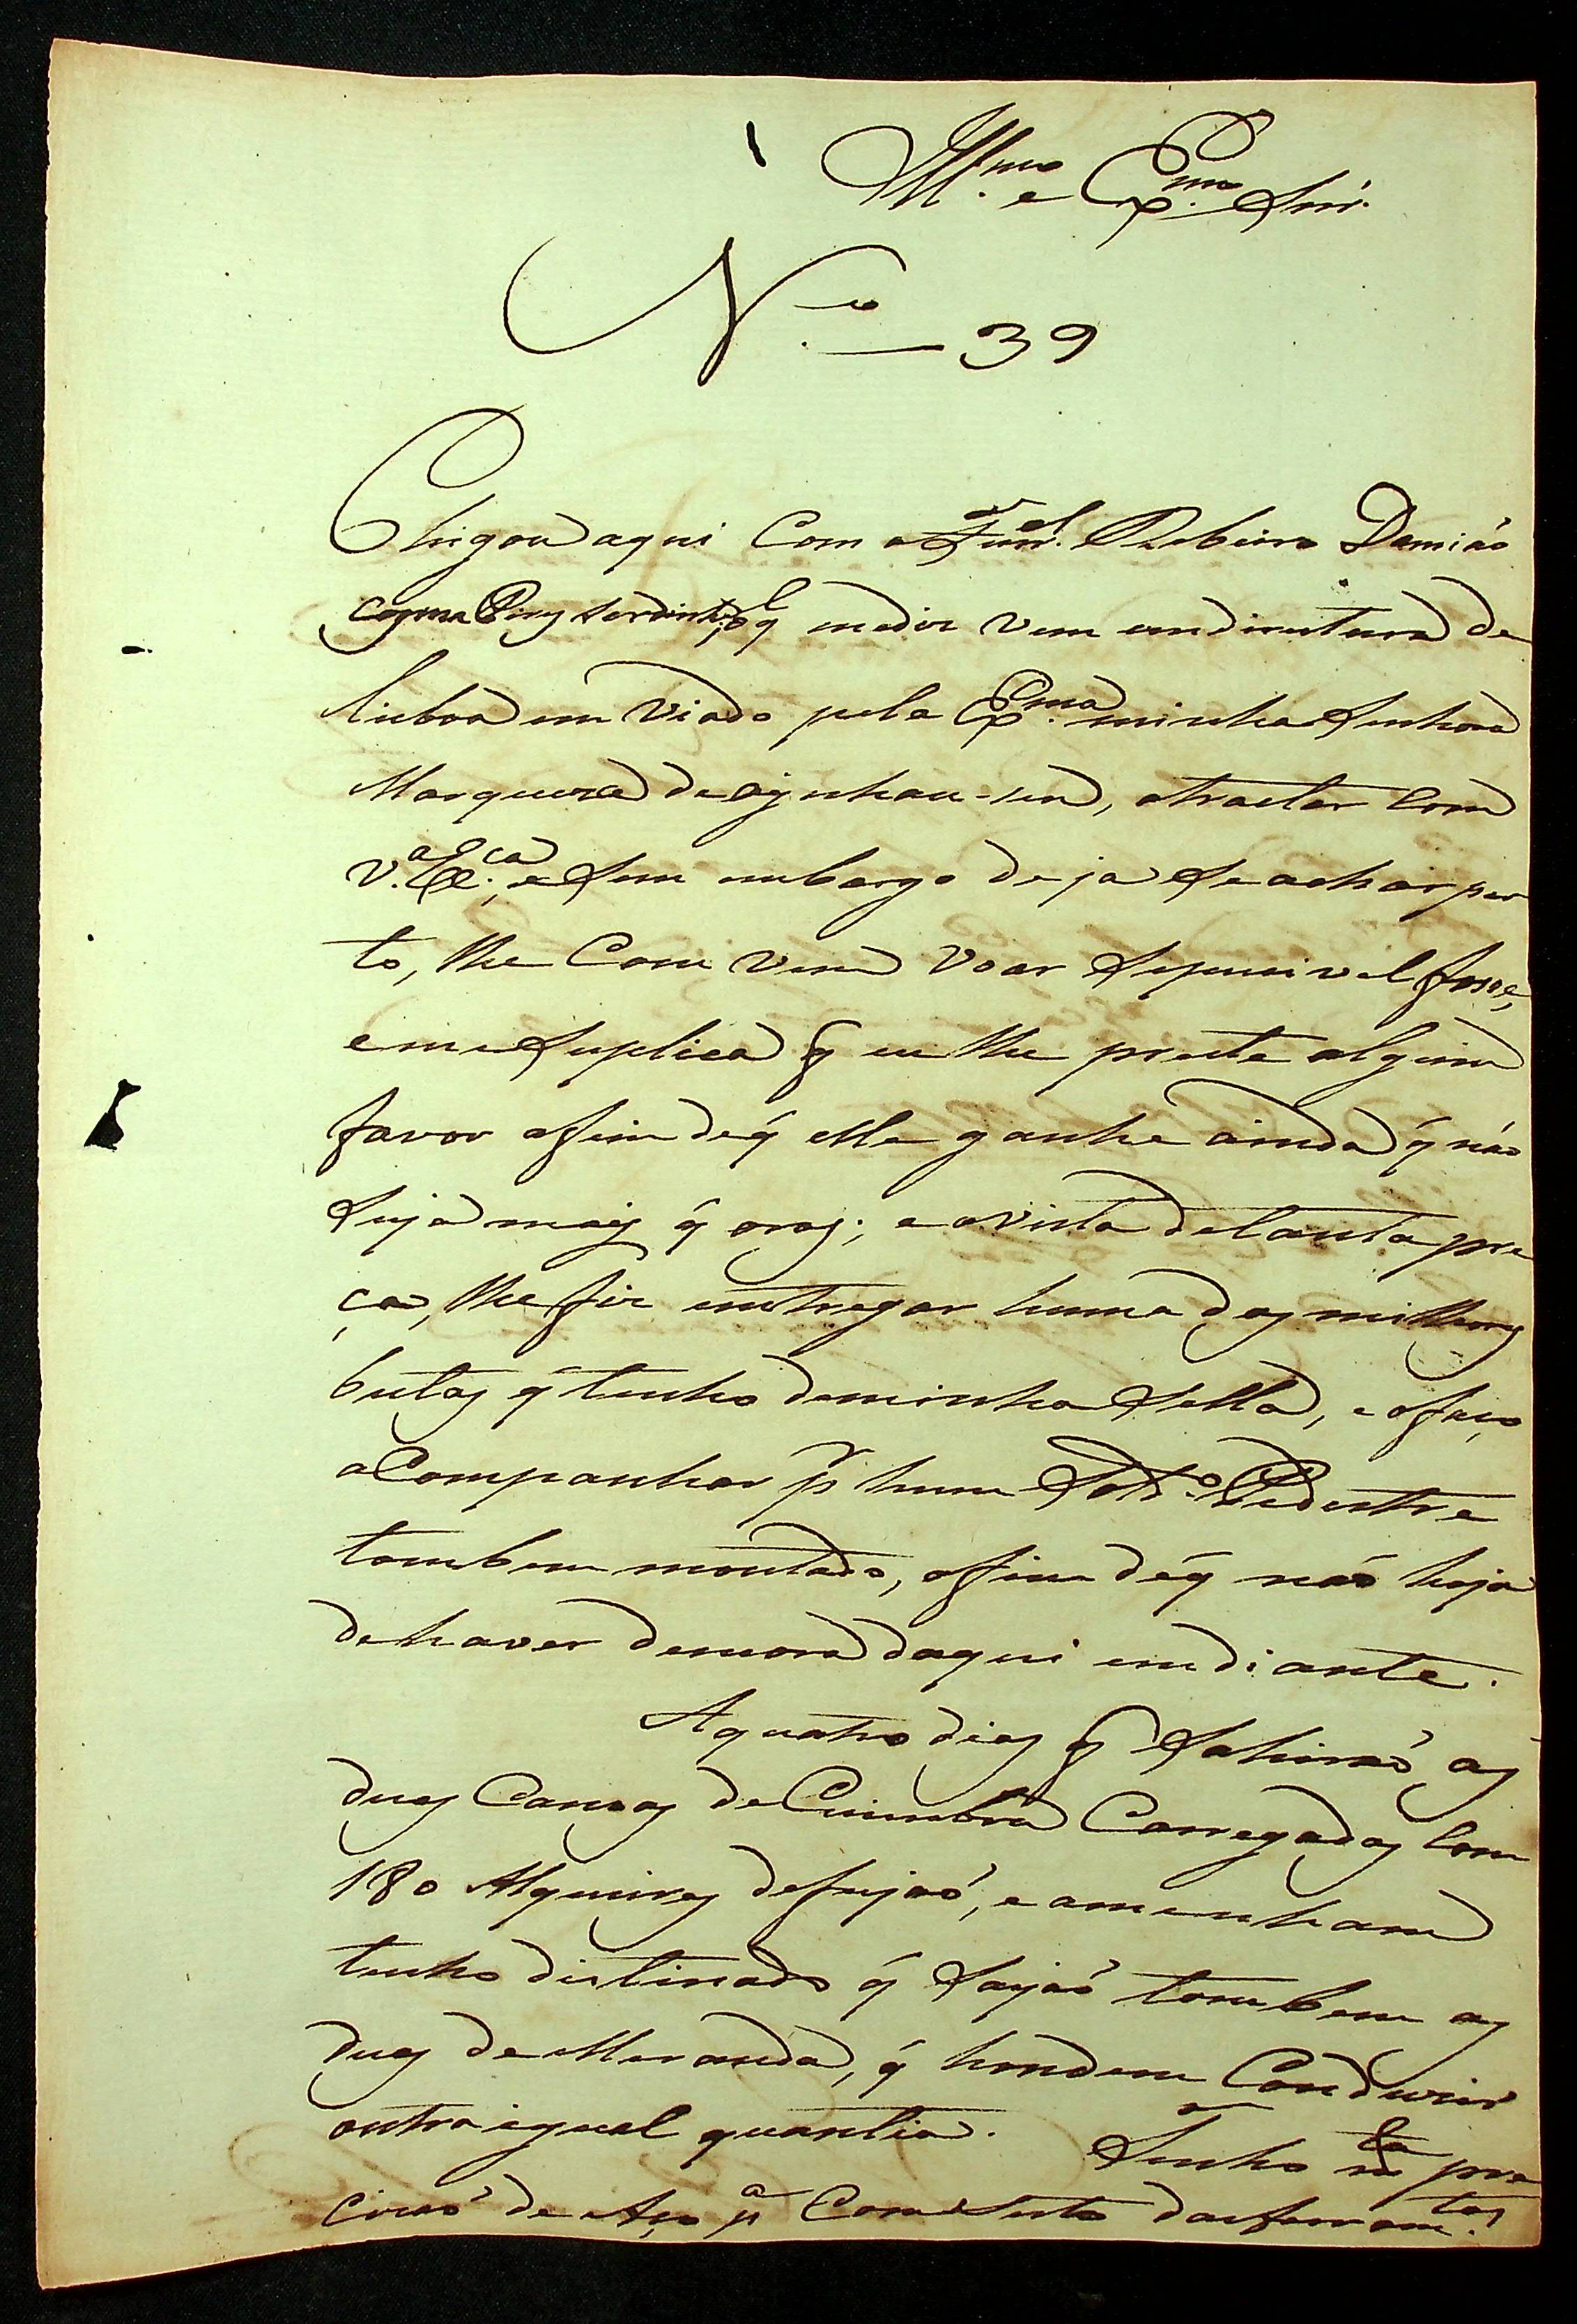 Ill.mo e Ex.mo Snr.
N.o — 39
Chigou aqui Com o Ten.el Ribeiro Damiáo
Cosme q̃ medis vem em diretura de
Lisboa em viado pela Ex.ma minha Senhora
Marqueza de Anjenhau-sem, atractar Com
V.a Ex.ca, e Sem embargo de já Se achar per
to, lhe Com vem voar Se pucivel fosse,
e me Suplica q̃ eu lhe preste algum
favor afim de q̃ elle ganhe ainda q̃ náo
Seja mais q̃ oras; e a vista de tanta pre
ça, lhe fiz entregar huma das milhores
bestas q̃ tenho de minha Sella, e o faço
aCompanhar p.r hum Sold.o Pedestre
tambem montado, afim de q̃ náo haja
de haver demora daqui em diante.
A quatro dias q̃ Sahiraó as
duas Canoas de Cuimbra Carregadas Com
180 Alqueires de feijaó, e amenham
tenho distinado q̃ Sayaó tambem as
duas de Miranda, q̃ handem Conduzir
outra igual quantia. Tenho m.ta pre
cizaó de Aço p.a Comserto das ferram.tas